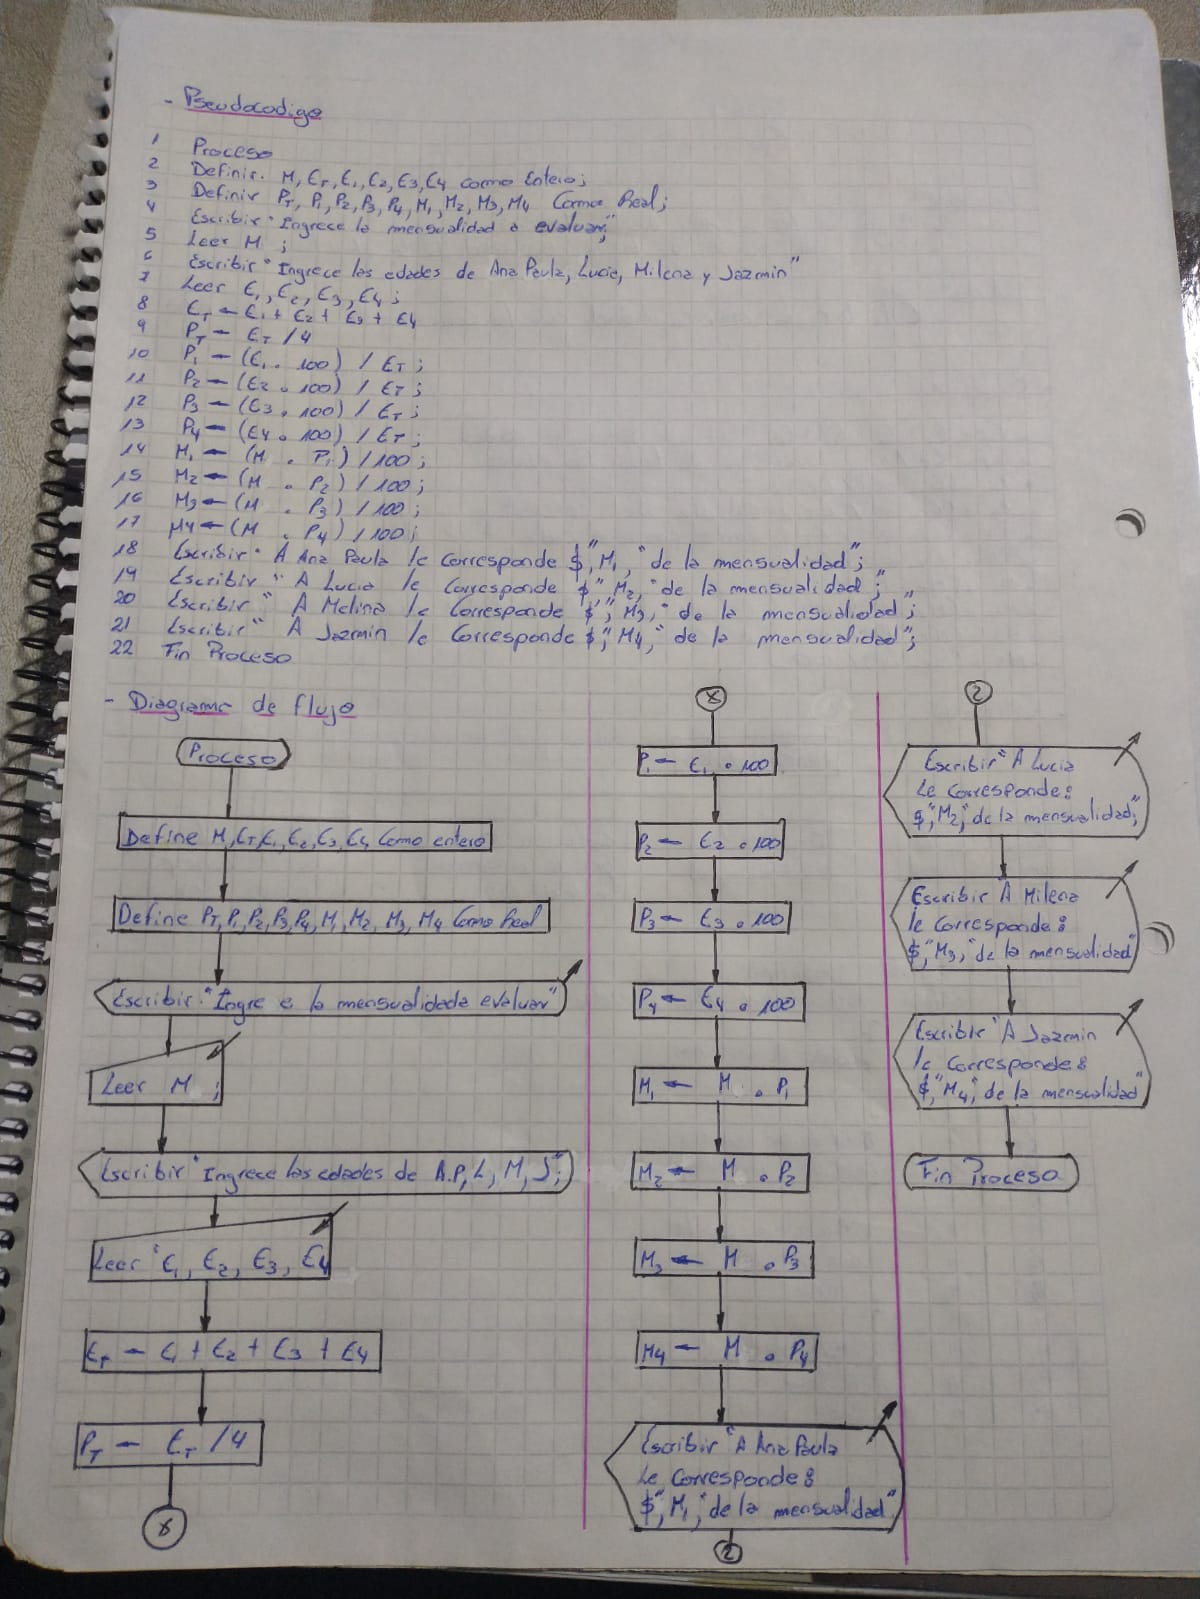 - Pseudocodigo
1 Proceso
2 Definir. M, ET, E1, E2, E3, E4 como Entero;
3 Definir PT, P1, P2, P3, P4, M1, M2, M3, M4 Como Real;
4 Escribir "Ingrece la mensualidad a evaluar;"
5 Leer M ;
6 Escribir "Ingrece las edades de Ana Paula, Lucia, Milena y Jazmin"
7 Leer E1, E2, E3, E4 ;
8 ET ← E1 + E2 + E3 + E4
9 PT ← ET / 4
10 P1 ← (E1 . 100) / ET ;
11 P2 ← (E2 . 100) / ET ;
12 P3 ← (E3 . 100) / ET ;
13 P4 ← (E4 . 100) / ET ;
14 M1 ← (M . P1) / 100 ;
15 M2 ← (M . P2) / 100 ;
16 M3 ← (M . P3) / 100 ;
17 M4 ← (M . P4) / 100 ;
18 Escribir " A Ana Paula le corresponde $", M1, "de la mensualidad";
19 Escribir " A Lucia le corresponde $", M2, "de la mensualidad ;"
20 Escribir " A Melina le corresponde $", M3, "de la mensualidad ;"
21 Escribir " A Jazmin le Corresponde $", M4, "de la mensualidad";
22 Fin Proceso
- Diagrama de flujo
Proceso
Define M, ET, E1, E2, E3, E4 Como entero
Define PT, P1, P2, P3, P4, M1, M2, M3, M4 Como Real
Escribir "Ingre e la mensualidada evaluar"
Leer M ;
Escribir "Ingrece las edades de A.P, L, M, J";
Leer E1, E2, E3, E4
ET ← E1 + E2 + E3 + E4
PT ← ET / 4
x
x
P1 ← E1 . 100
P2 ← E2 . 100
P3 ← E3 . 100
P4 ← E4 . 100
M1 ← M . P1
M2 ← M . P2
M3 ← M . P3
M4 ← M . P4
Escribir "A Ana Paula
Le Corresponde:
$", M1, "de la mensualidad"
2
2
Escribir "A Lucia
Le Corresponde:
$", M2, "de la mensualidad";
Escribir "A Milena
le Corresponde:
$", M3, "de la mensualidad"
Escribir "A Jazmin
le Corresponde:
$", M4, "de la mensualidad"
Fin Proceso